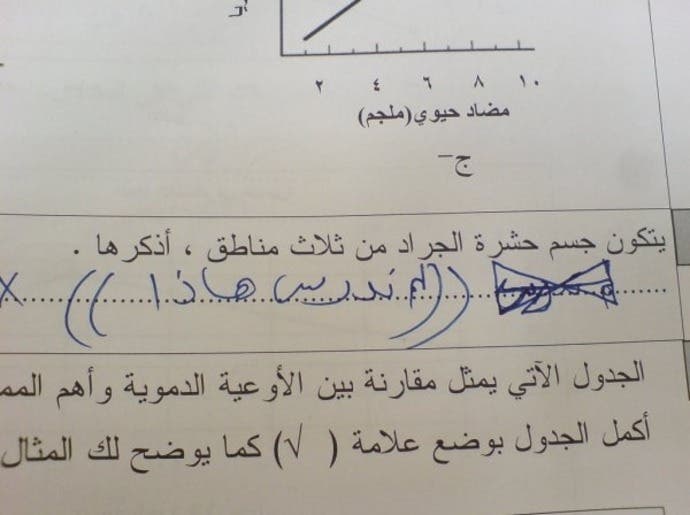 ٢ ٤ ٦ ٨ ١٠
مضاد حيوي(ملجم)
ج-
يتكون جسم حشرة الجراد من ثلاث مناطق ، أذكرها .
((لم ندرس هاذا))
الجدول الآتي يمثل مقارنة بين الأوعية الدموية وأهم
أكمل الجدول بوضع علامة ( √) كما يوضح لك المثال